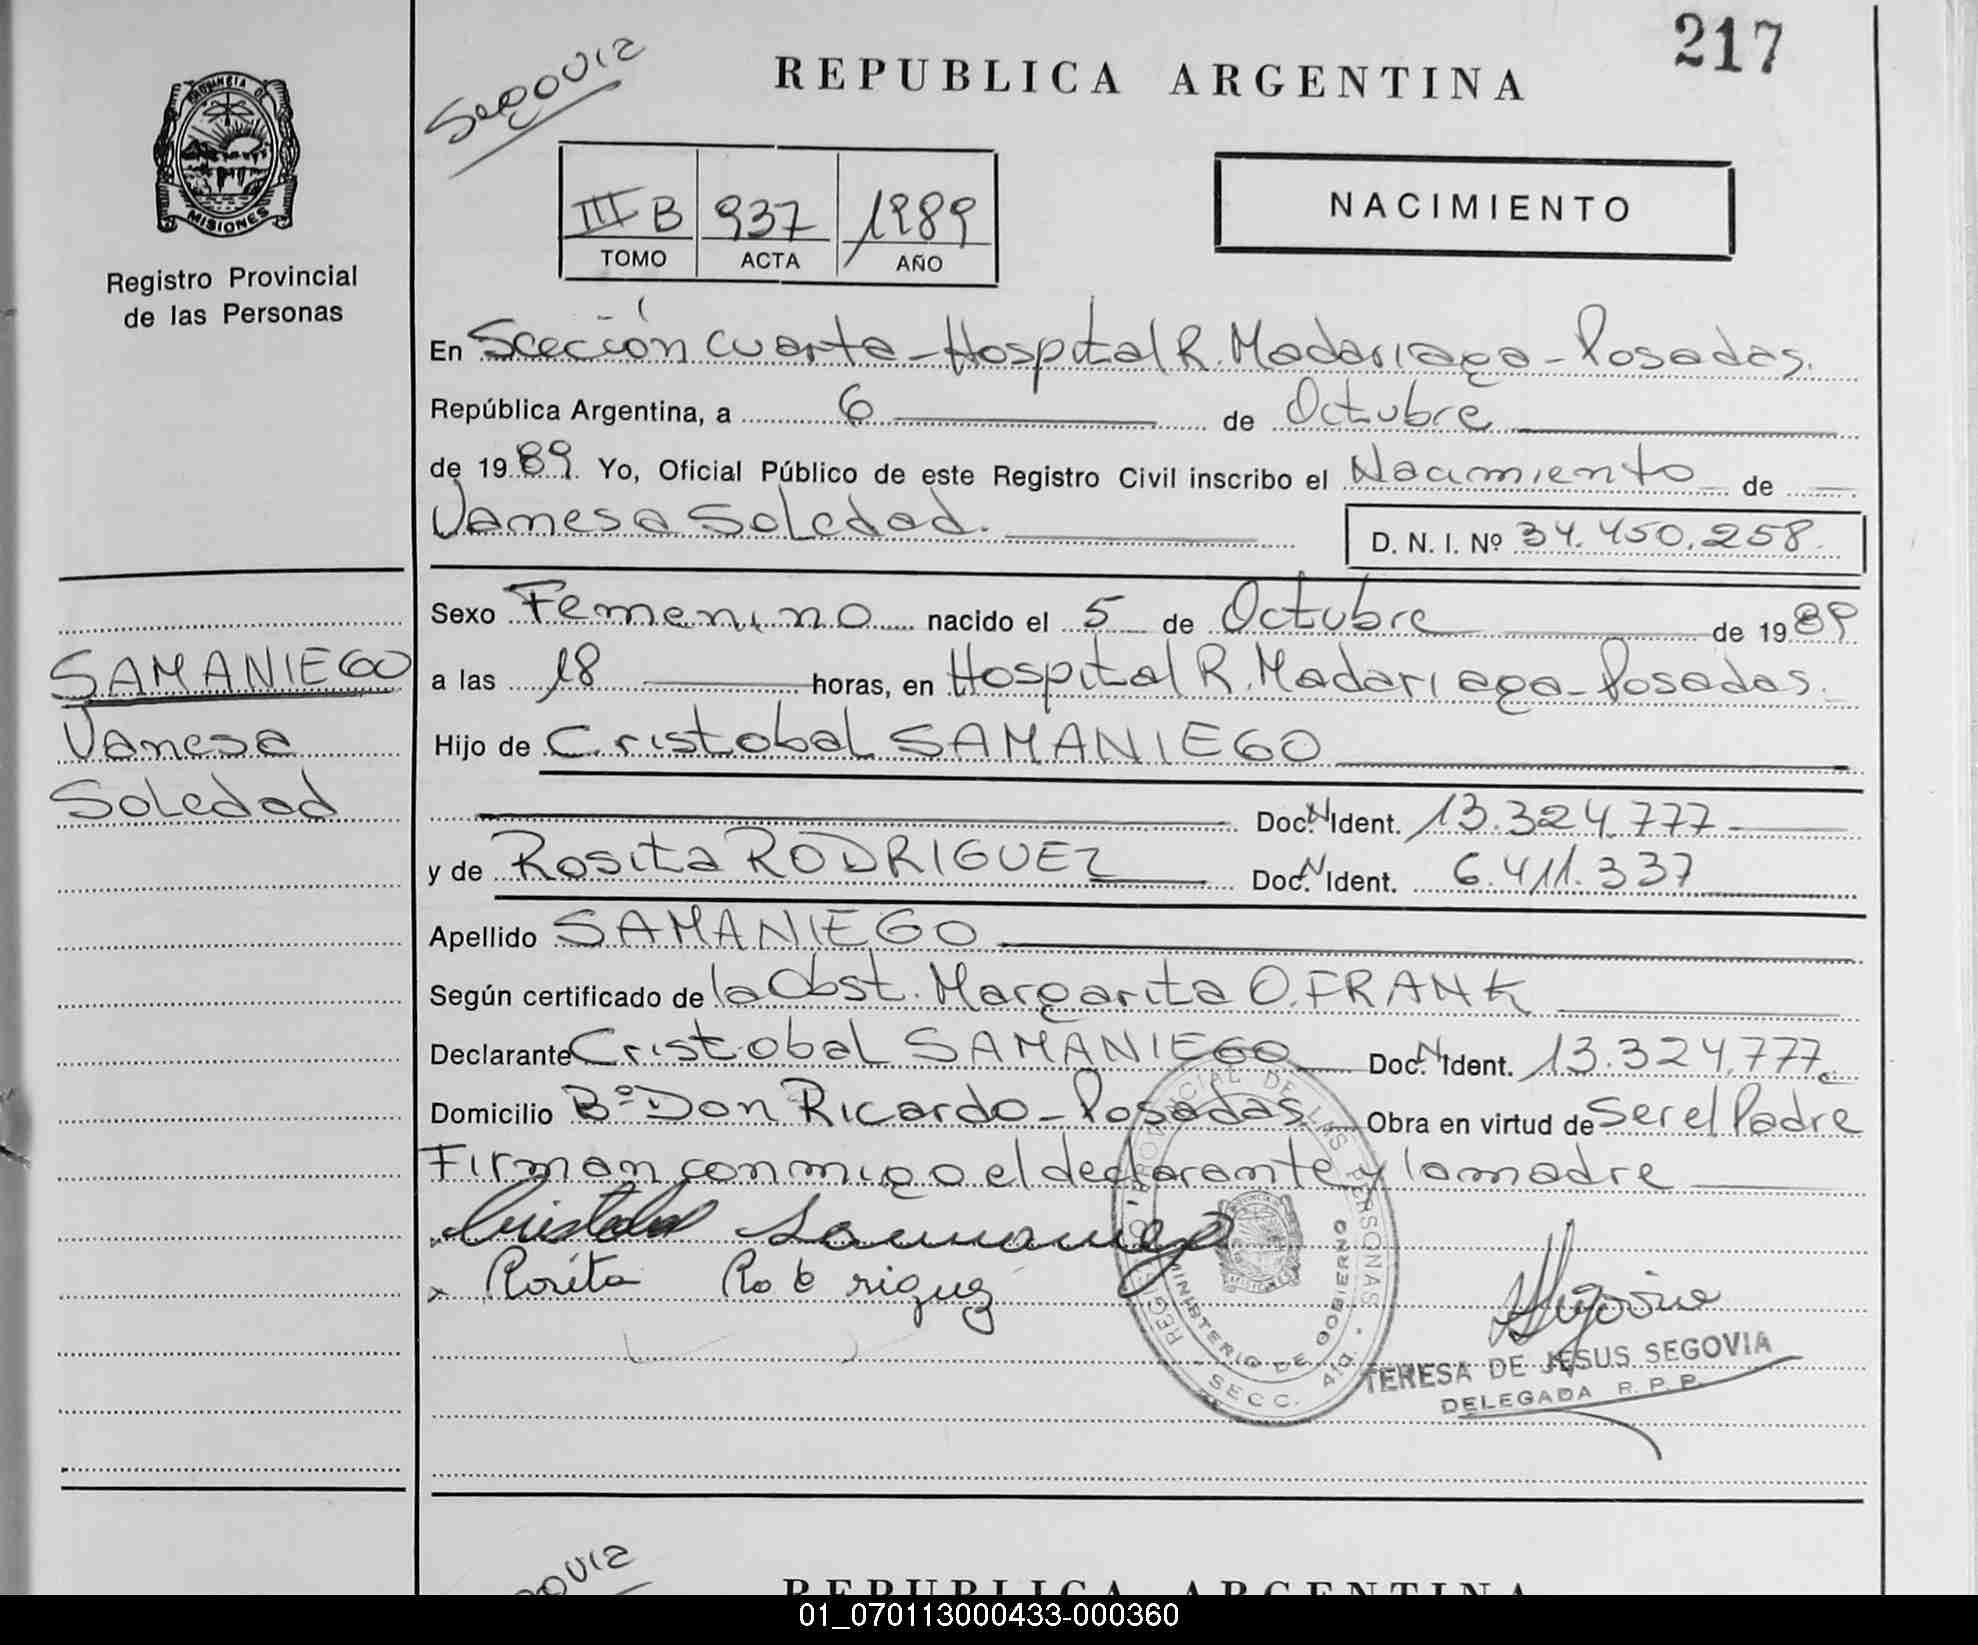 217
Segovia
REPUBLICA ARGENTINA
PROVINCIA DE
MISIONES
Registro Provincial
de las Personas
III B 937 1989
TOMO ACTA AÑO
NACIMIENTO
En Scección cuarta - Hospital R. Madariaga - Posadas.
República Argentina, a 6 de Octubre
de 1989. Yo, Oficial Público de este Registro Civil inscribo el Nacimiento de
Vanesa Soledad.
D. N. I. Nº 34.450.258.
SAMANIEGO
Vanesa
Soledad
Sexo Femenino nacido el 5 de Octubre de 1989
a las 18 horas, en Hospital R. Madariaga - Posadas.
Hijo de Cristobal SAMANIEGO
Doc. N Ident. 13.324.777
y de Rosita RODRIGUEZ Doc. N Ident. 6.411.337
Apellido SAMANIEGO
Según certificado de la Obst. Margarita O. FRANK
Declarante Cristobal SAMANIEGO Doc. N Ident. 13.324.777.
Domicilio Bº Don Ricardo - Posadas. Obra en virtud de Ser el Padre
Firman conmigo el declarante y la madre
Cristobal Samaniego
x Rosita Rodriguez
REGISTRO PROVINCIAL DE LAS PERSONAS
MINISTERIO DE GOBIERNO
SECC. 4ta.
Segovia
TERESA DE JESUS SEGOVIA
DELEGADA R. P. P.
ovia
REPUBLICA ARGENTINA
01_070113000433-000360